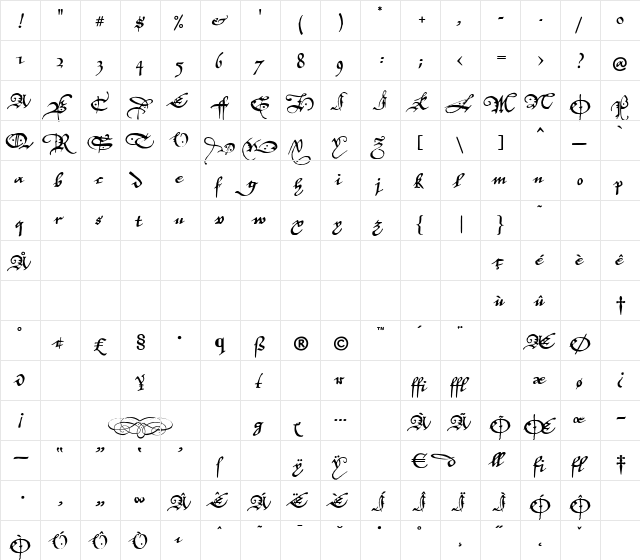 ! " # $ % & ' ( ) * + , - . / 0
1 2 3 4 5 6 7 8 9 : ; < = > ? @
A B C D E F G H I J K L M N O P
Q R S T U V W X Y Z [ \ ] ^ _ `
a b c d e f g h i j k l m n o p
q r s t u v w x y z { | } ~
Å ç é è ê
ù û †
° ¢ £ § • ß ® © ™ ´ ¨ Æ Ø
¥ æ ø ¿
¡ … À Ã Õ Œ œ –
— “ ” ‘ ’ ÿ Ÿ € ‡
· ‚ „ ‰ Â Ê Á Ë È Í Î Ï Ì Ó Ô
Ò Ú Û Ù ı ˆ ˜ ¯ ˘ ˙ ˚ ¸ ˝ ˛ ˇ